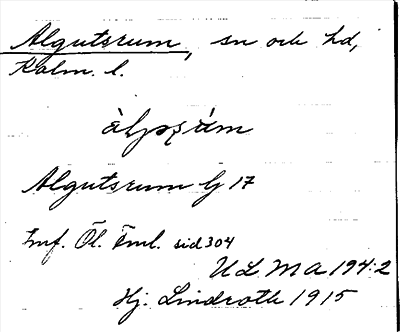 Algutsrum, sn och hd,
Kalm. l.
Algutsrum lj 17
Inf. Öl. Fml. sid 304
ULMA 194:2
Hj. Lindroth 1915